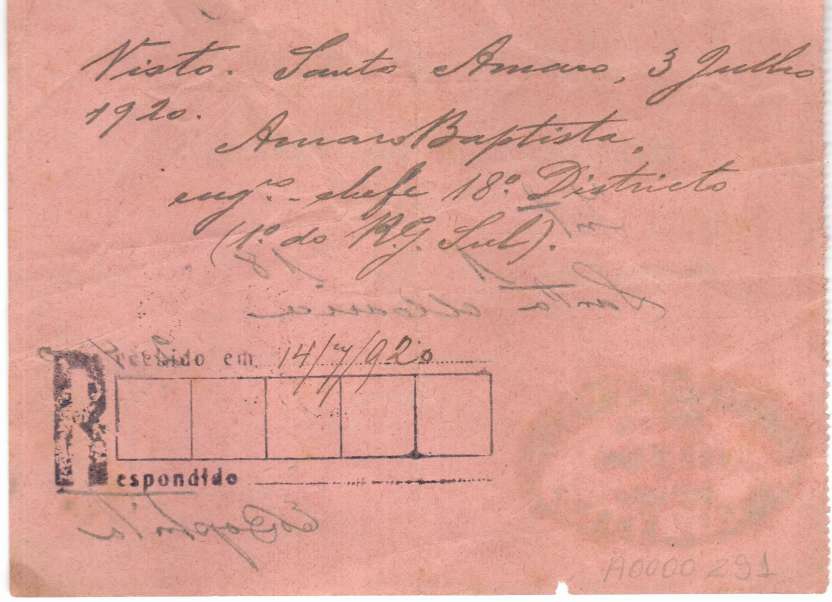 Visto. Santo Amaro, 3 Julho
1920.
Amaro Baptista,
engro. - chefe 18º. Districto
(1º. do R.G. Sul).
Recebido em 14/7/920
Respondido
A0000291